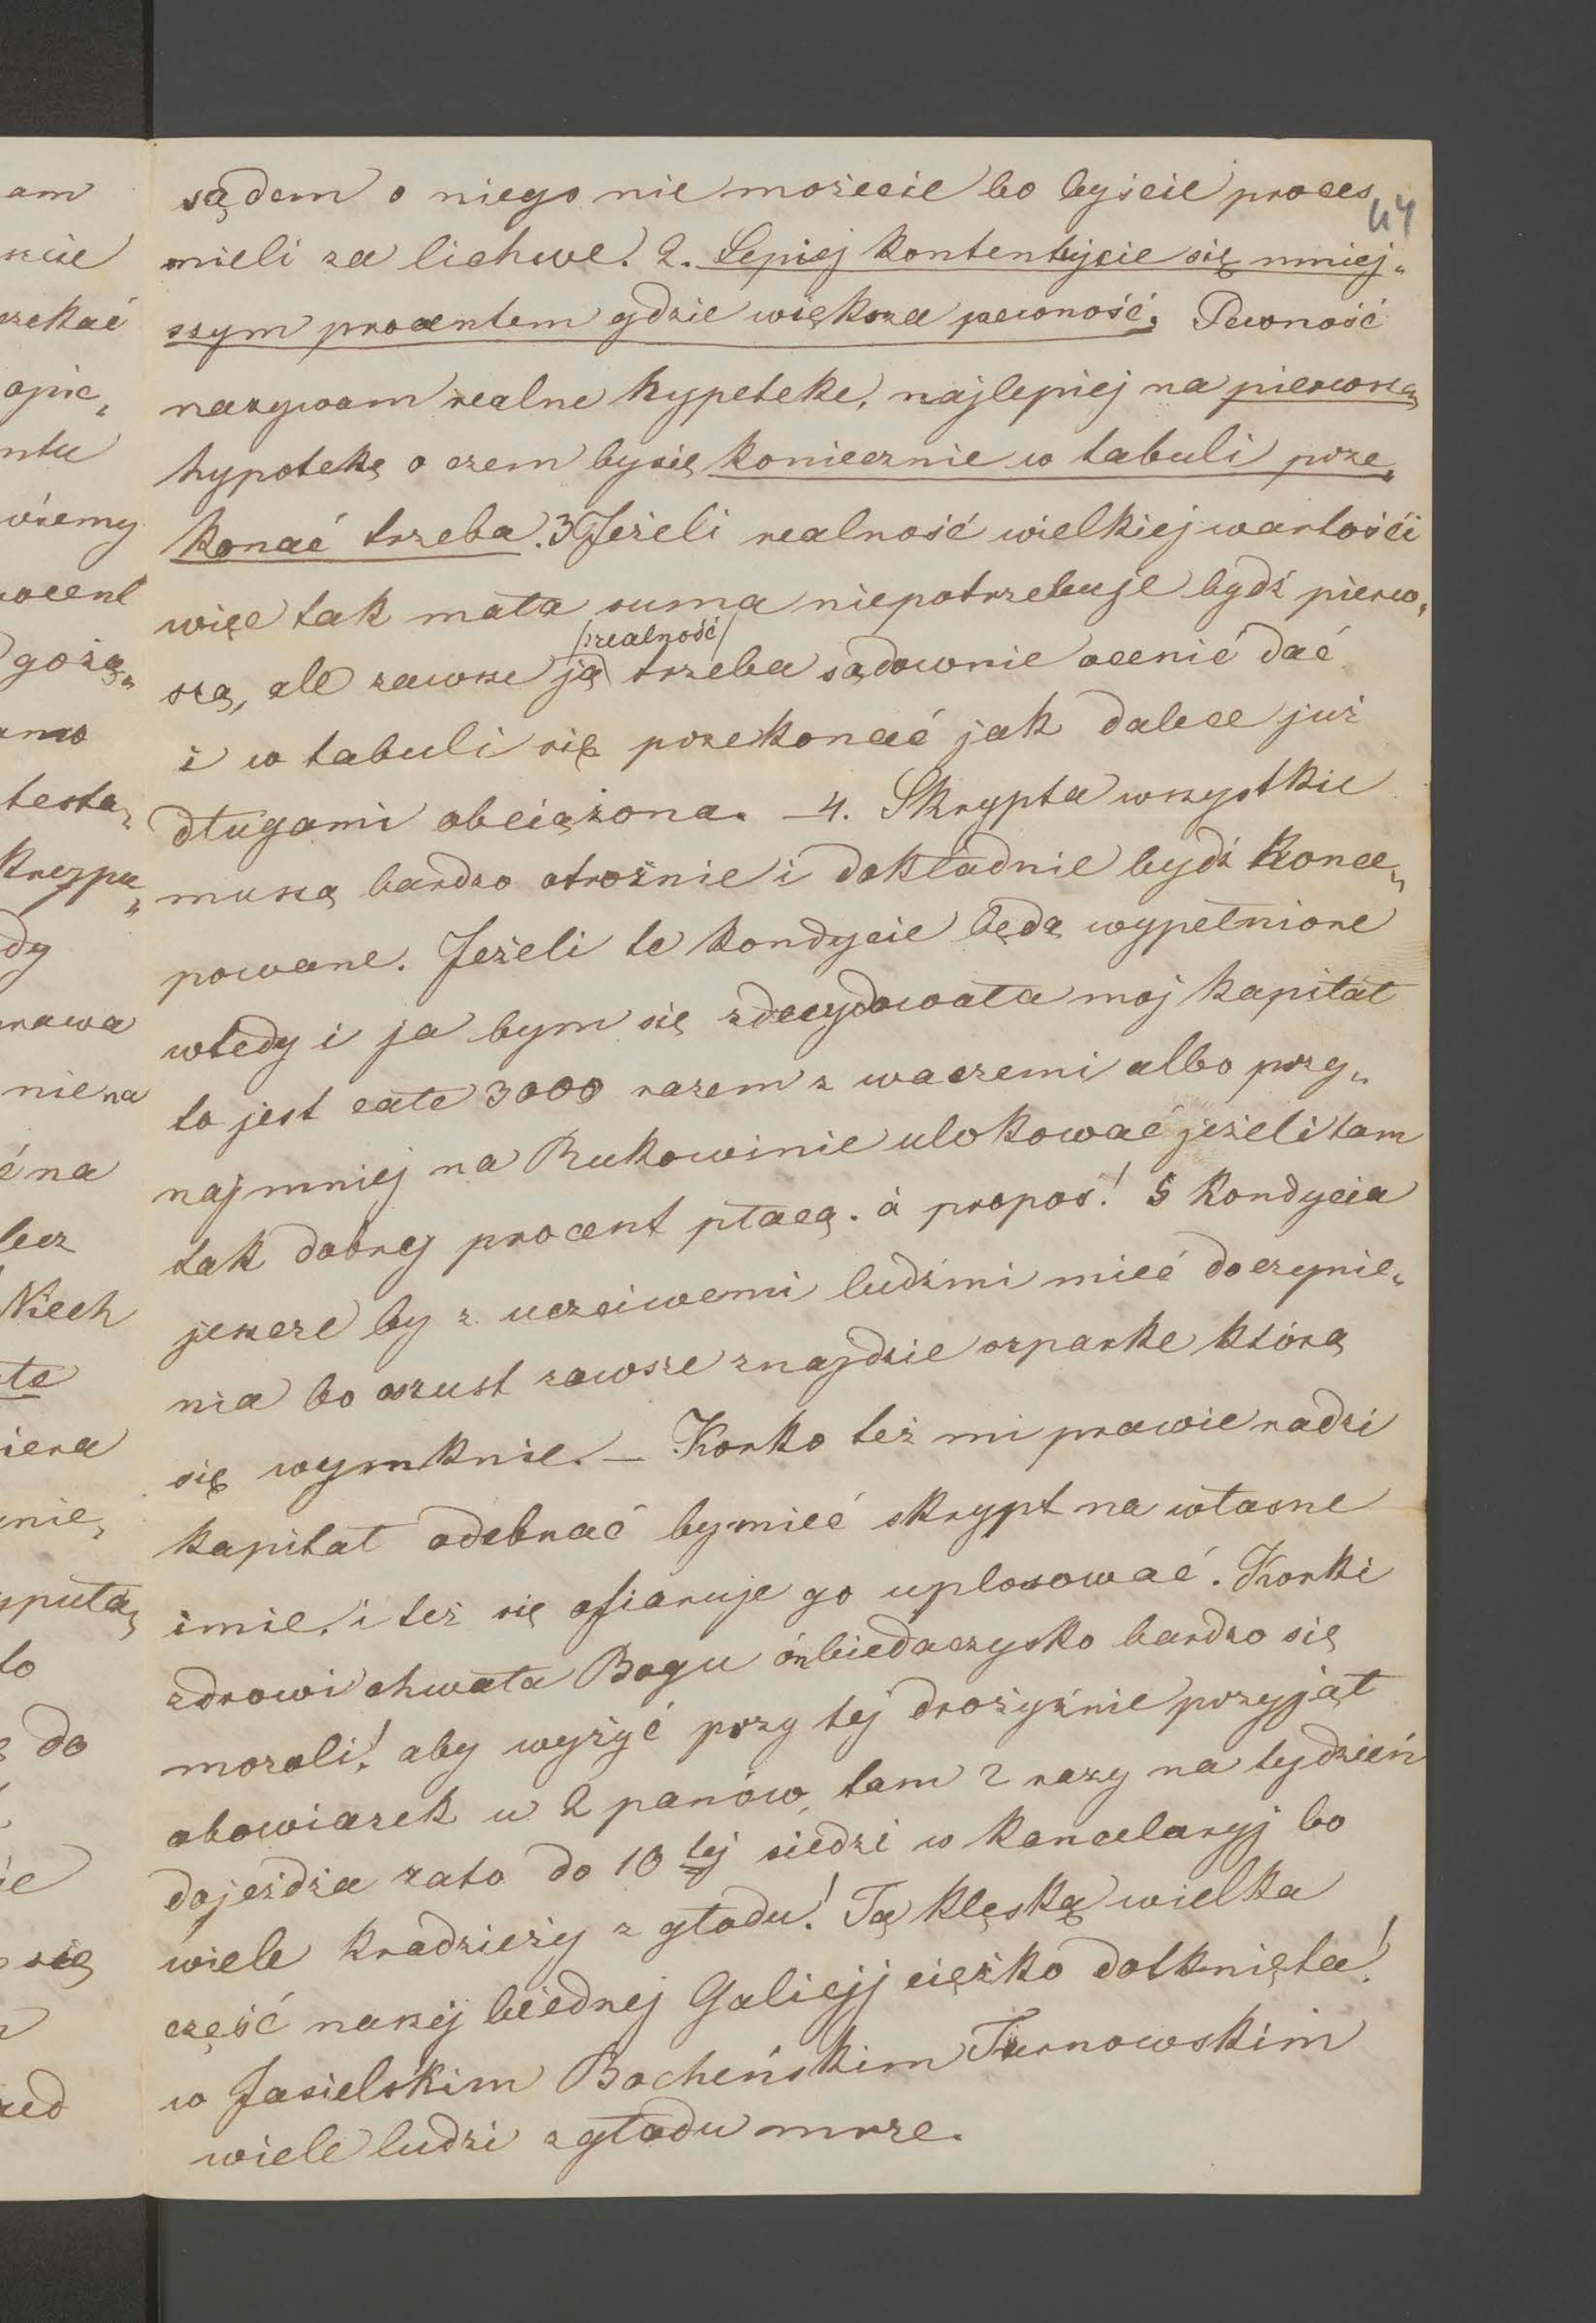 am
szcie
czekać
opie„
ntu
wiemy
rocent
gożą„
testa„
krypa„
dy
rawa
nie na
ć na
lecz
Niech
iera
nie„
yputa„
to
do
się
44
sądem o niego nie możecie bo byście proces
mieli za lichwe. 2. Lepiej kontentujcie się mniej„
szym procentem gdzie większa pewność. Pewność
nazywam realne hypeteke, najlepiej na pierwszą
hypotekę o czem by się koniecznie w tabuli prze„
konać trzeba. 3 Jeżeli realność wielkiej wartości
więc tak mała suma niepotrzebuje bydź pierw„
/realność/
szą, ale zawsze ją trzeba sądownie ocenić dać
i w tabuli się przekonać jak dalece już
długami obciążona. – 4. Skrypta wszystkie
muszą bardzo otrożnie i dokładnie bydź konce„
powane. Jeżeli te kondycie będą wypełnione
wtedy i ja bym się zdecydowała moj kapitał
to jest całe 3000 razem z waszemi albo przy„
najmniej na Bukowinie ulokować jeżeli tam
tak dobry procent płacą. à propos! 5 Kondycia
jeszcze by z uczciwemi ludźmi mieć do czynie„
nia bo oszust zawsze znajdzie szparke którą
się wymknie. – Korko też mi prawie radzi
kapitał odebrać by mieć skrypt na własne
imie, i też się ofiaruje go uplosować. Korki
zdrowi chwała Bogu ón biedaczysko bardzo się
mozoli! aby wyżyć przy tej drożyźnie przyjął
obowiazek u 2 panów, tam 2 razy na tydzień
dojeżdża zato do 10 tej siedzi w kancelaryj bo
wiele kradzieży z głodu! Tą klęską wielka
część naszej biednej Galicyj ciężko dotknięta!
w Jasielskim Bocheńskim Tarnowskim
wiele ludzi z głodu mrze.